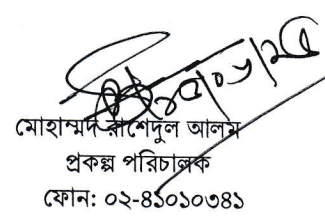 মোহাম্মদ রাশেদুল আলম
প্রকল্প পরিচালক
ফোন: ০২-৪১০১০৩৪১